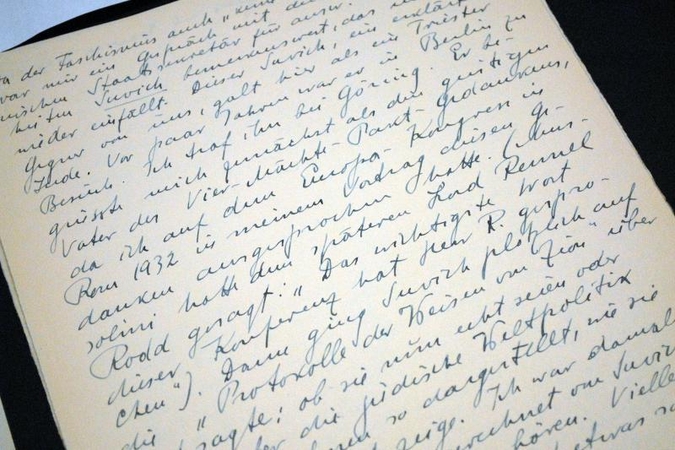 der Faschismus auch
war mir ein Gespräch mit
Staatssekretär für
Suvich bemerkenswert, das
wieder einfällt. Dieser Suvich, ein erklärter
Gegner von uns, galt hier als ein Triester
Jude. Vor paar Jahren war er in Berlin zu
Besuch. Ich traf ihn bei Göring. Er be-
grüsste mich zunächst als den geistigen
Vater des Vier-Mächte-Pakt-Gedankens,
da ich auf dem Europa-Kongress in
Rom 1932 in meinem Vortrag diesen Ge-
danken ausgesprochen hatte. (Mus-
solini hatte dem späteren Lord Rennel
Rodd gesagt: „Das wichtigste Wort
dieser Konferenz hat Herr R. gespro-
chen“). Dann ging Suvich plötzlich auf
die „Protokolle der Weisen von Zion“ über
sagte: ob sie nun echt seien oder
die jüdische Weltpolitik
so dargestellt, wie sie
zeige. Ich war damals
von Suvich
hören. Vielle
etwas